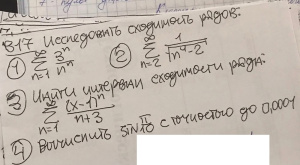 В17 Исследовать сходимость рядов:
① ∑_{n=1}^{∞} 3^n/n^n ② ∑_{n=2}^{∞} 1/√(n⁴-2)
③ Найти интервал сходимости ряда:
∑_{n=1}^{∞} (x-1)^n/(n+3)
④ Вычислить sin π/10 с точностью до 0,0001